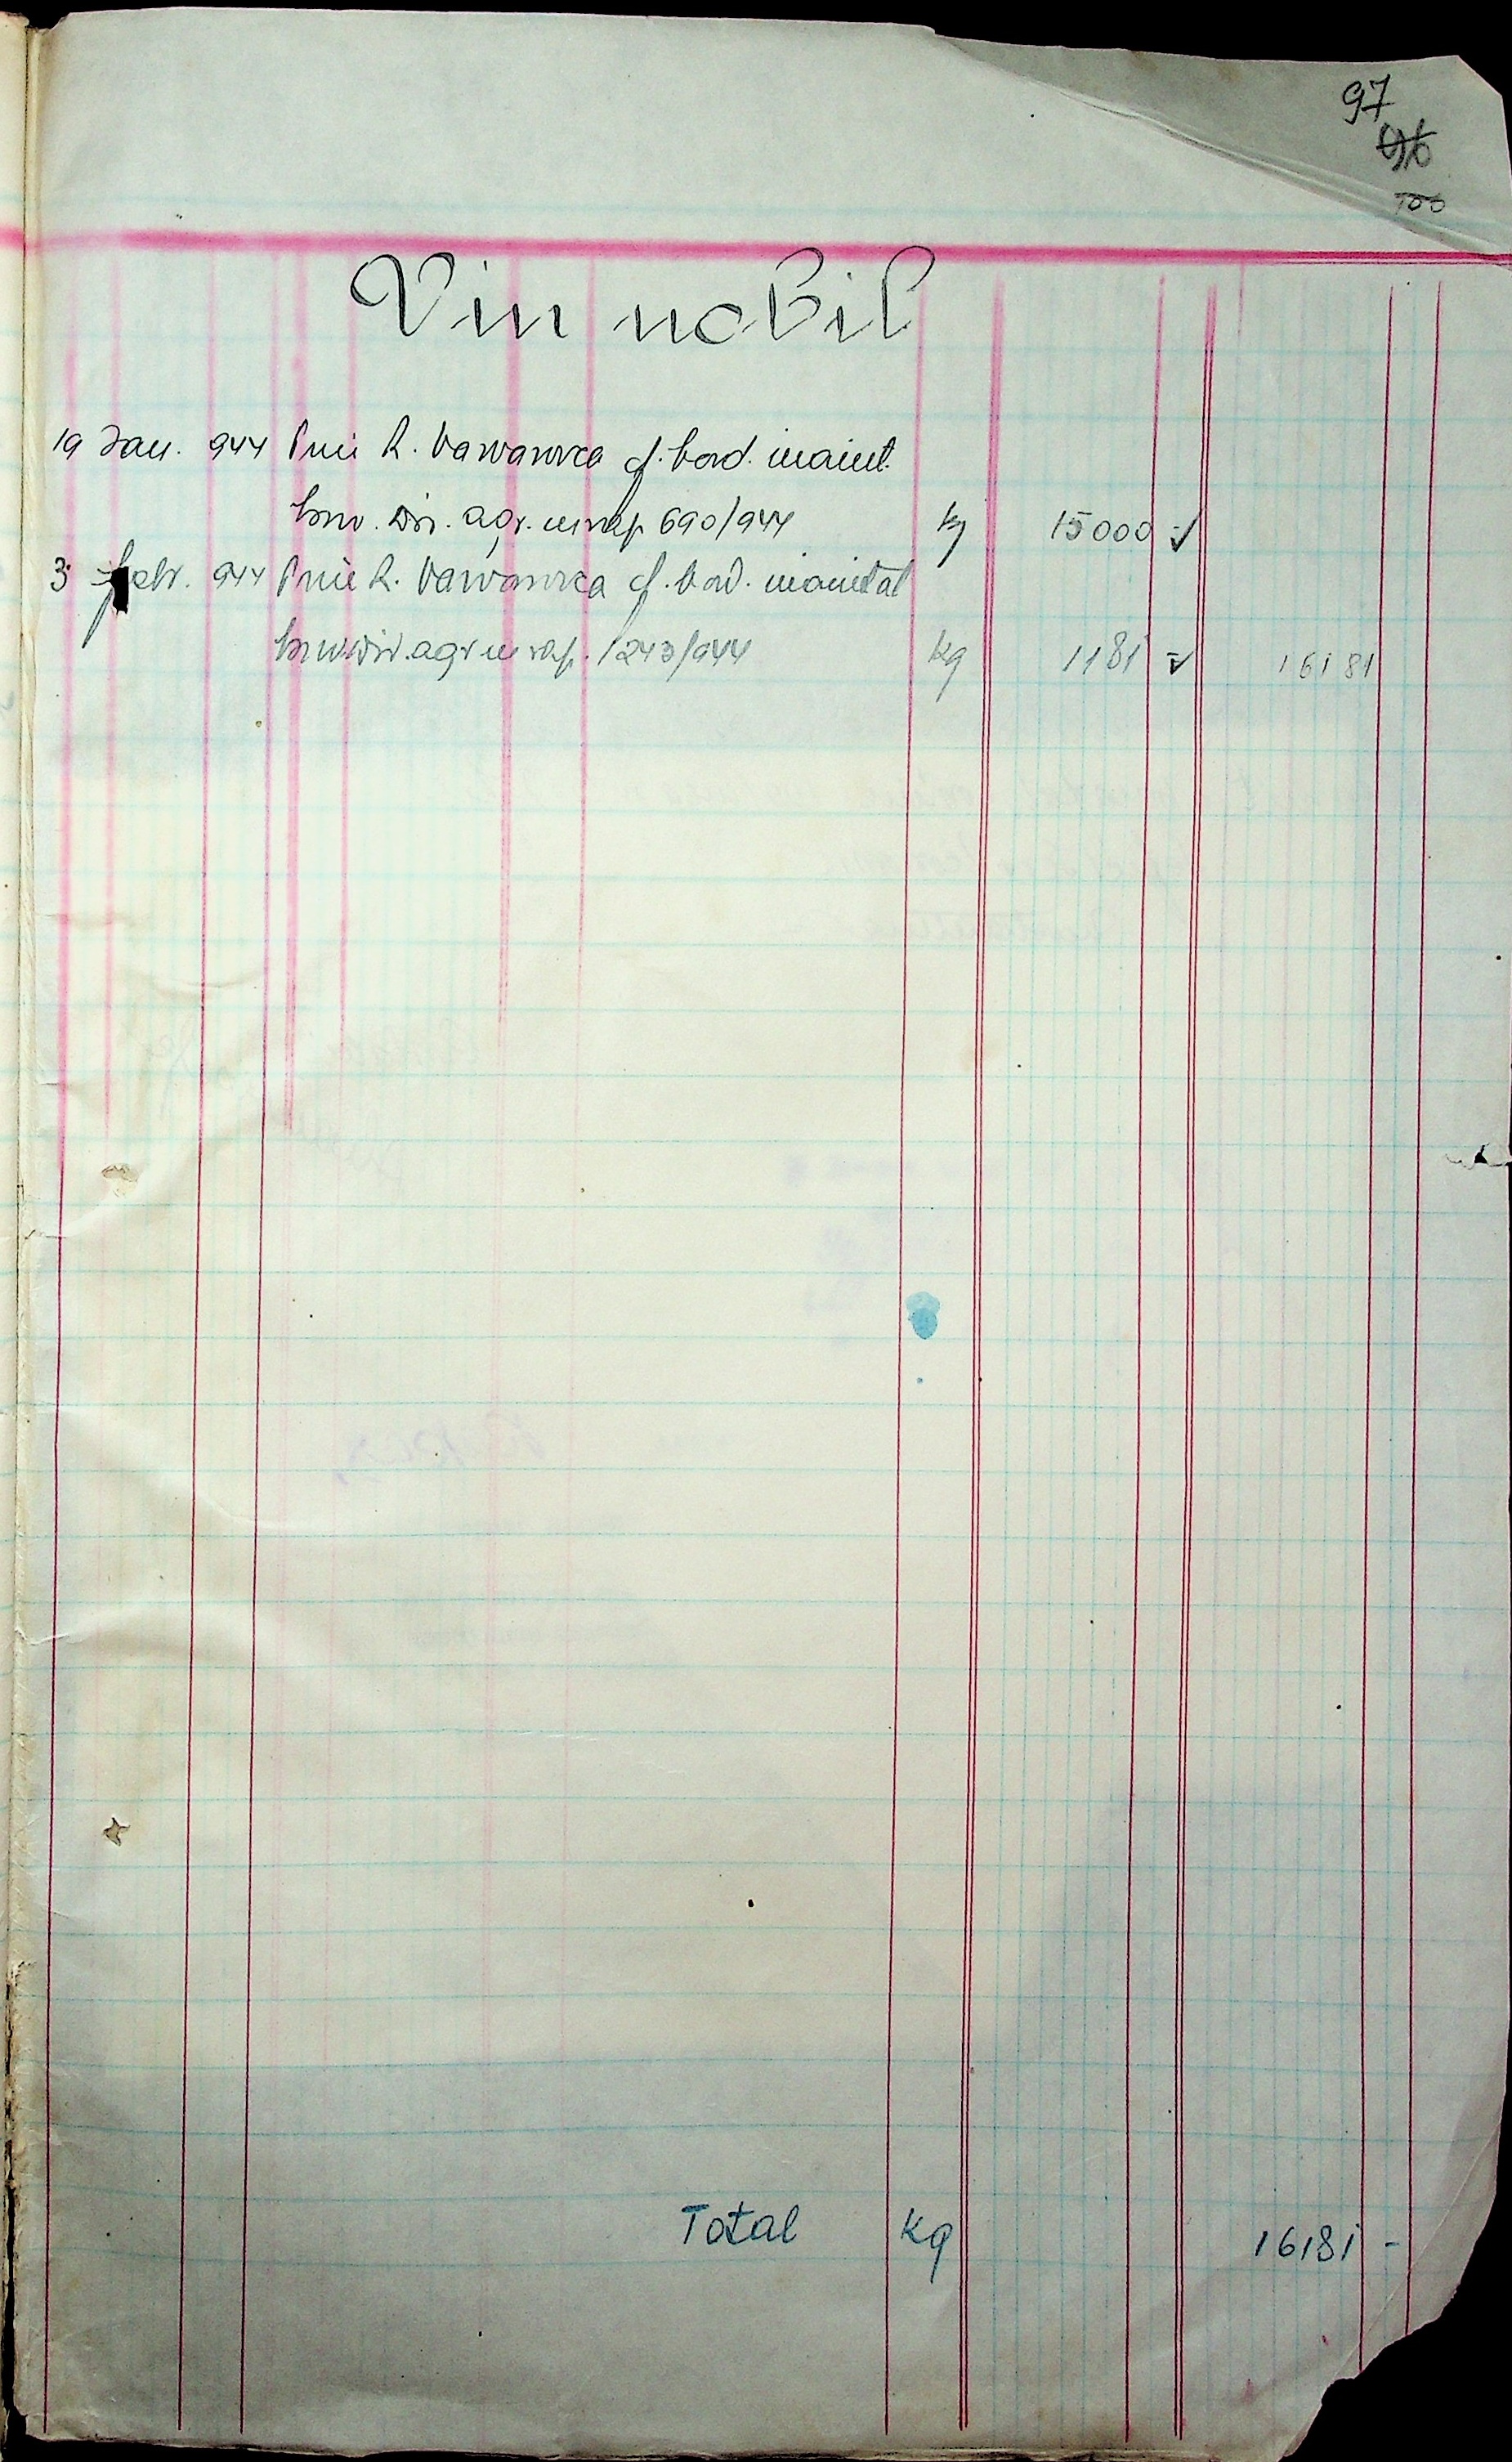 97
96
100
Vin nobil
19 Jan. 944 Prin R. Varvarovca cf. bord. inaint.
Dir. agr. cu rap 690/944 kg 15000 -
3 Febr. 944 Prin R. Varvarovca cf. bord. inaintat
Dir. agr cu rap. 1243/944 kg 1181 - 16181
Total kg 16181 -